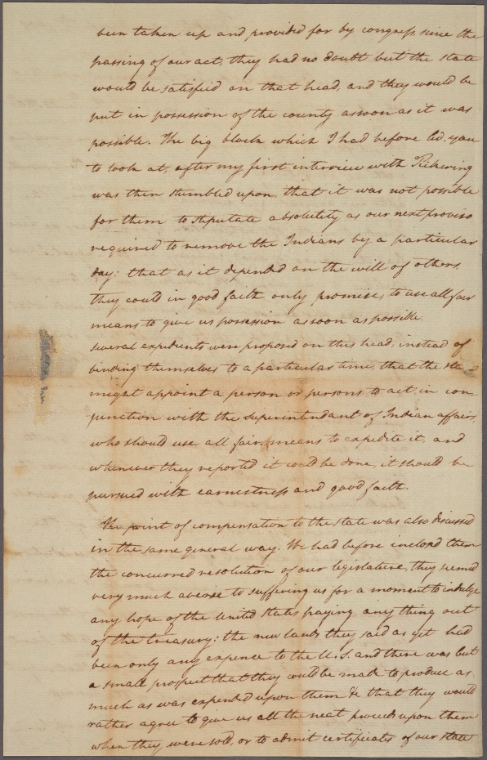 been taken up and provided for by congress since the
passing of our act, they had no doubt but the state
would be satisfied on that head, and they would be
put in possession of the county as soon as it was
possible. The big block which I had before led you
to look at, after my first interview with Pickering
was then stumbled upon that it was not possible
for them to stipulate absolutely as our next proviso
required to remove the Indians by a particular
day; that as it depended on the will of others
they could in good faith only promise, to use all fair
means to give us possession as soon as possible
several expedients were proposed on this head, instead of
binding themselves to a particular time, that the
might appoint a person or persons to act in con
junction with the Superintendant of Indian affairs
who should use all fair means to expedite it, and
whenever they reported it could be done, it should be
pursued with earnestness and good faith.
The point of compensation to the state was also discussed
in the same general way. We had before inclosed them
the concurred resolution of our legislature, they seemed
very much averse to suffering us for a moment to indulge
any hope of the United States paying any thing out
of the treasury: the new lands they said as yet had
been only any expence to the U.S. and there was but
a small prospect that they could be made to produce as
much as was expended upon them & that they would
rather agree to give us all the neat proceeds upon them
when they were sold, or to admit certificates of our state